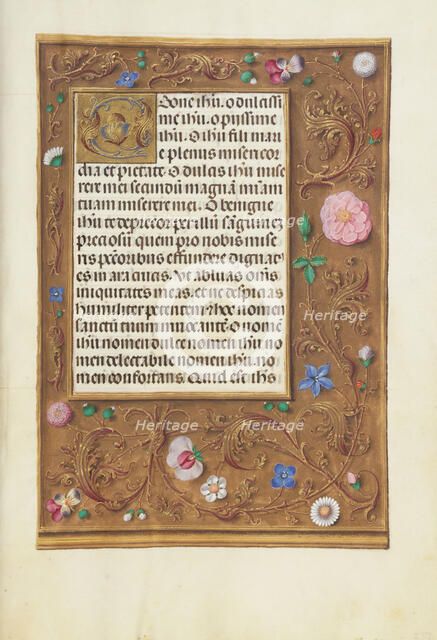 O bone ihu. o dulcissi
me ihu. o piissime
ihu. O ihu fili mari
e plenus misericor
dia et pietate. O dulcis ihu mise
rere mei secundum magnam miam
tuam miserere mei. O benigne
ihu te deprecor per illum sanguinem
preciosum quem pro nobis mise
ris peccatoribus effundere dignat
es in ara crucis. Vt abluas oms
iniquitates meas. et ne despicias
humiliter petentem. Hoc nomen
sanctum tuum inuocante. O nome
ihu nomen dulce nomen ihu. no
men delectabile nomen ihu. no
men confortans. Quid est ihs
Heritage
Heritage
Heritage
Heritage
Heritage
Heritage